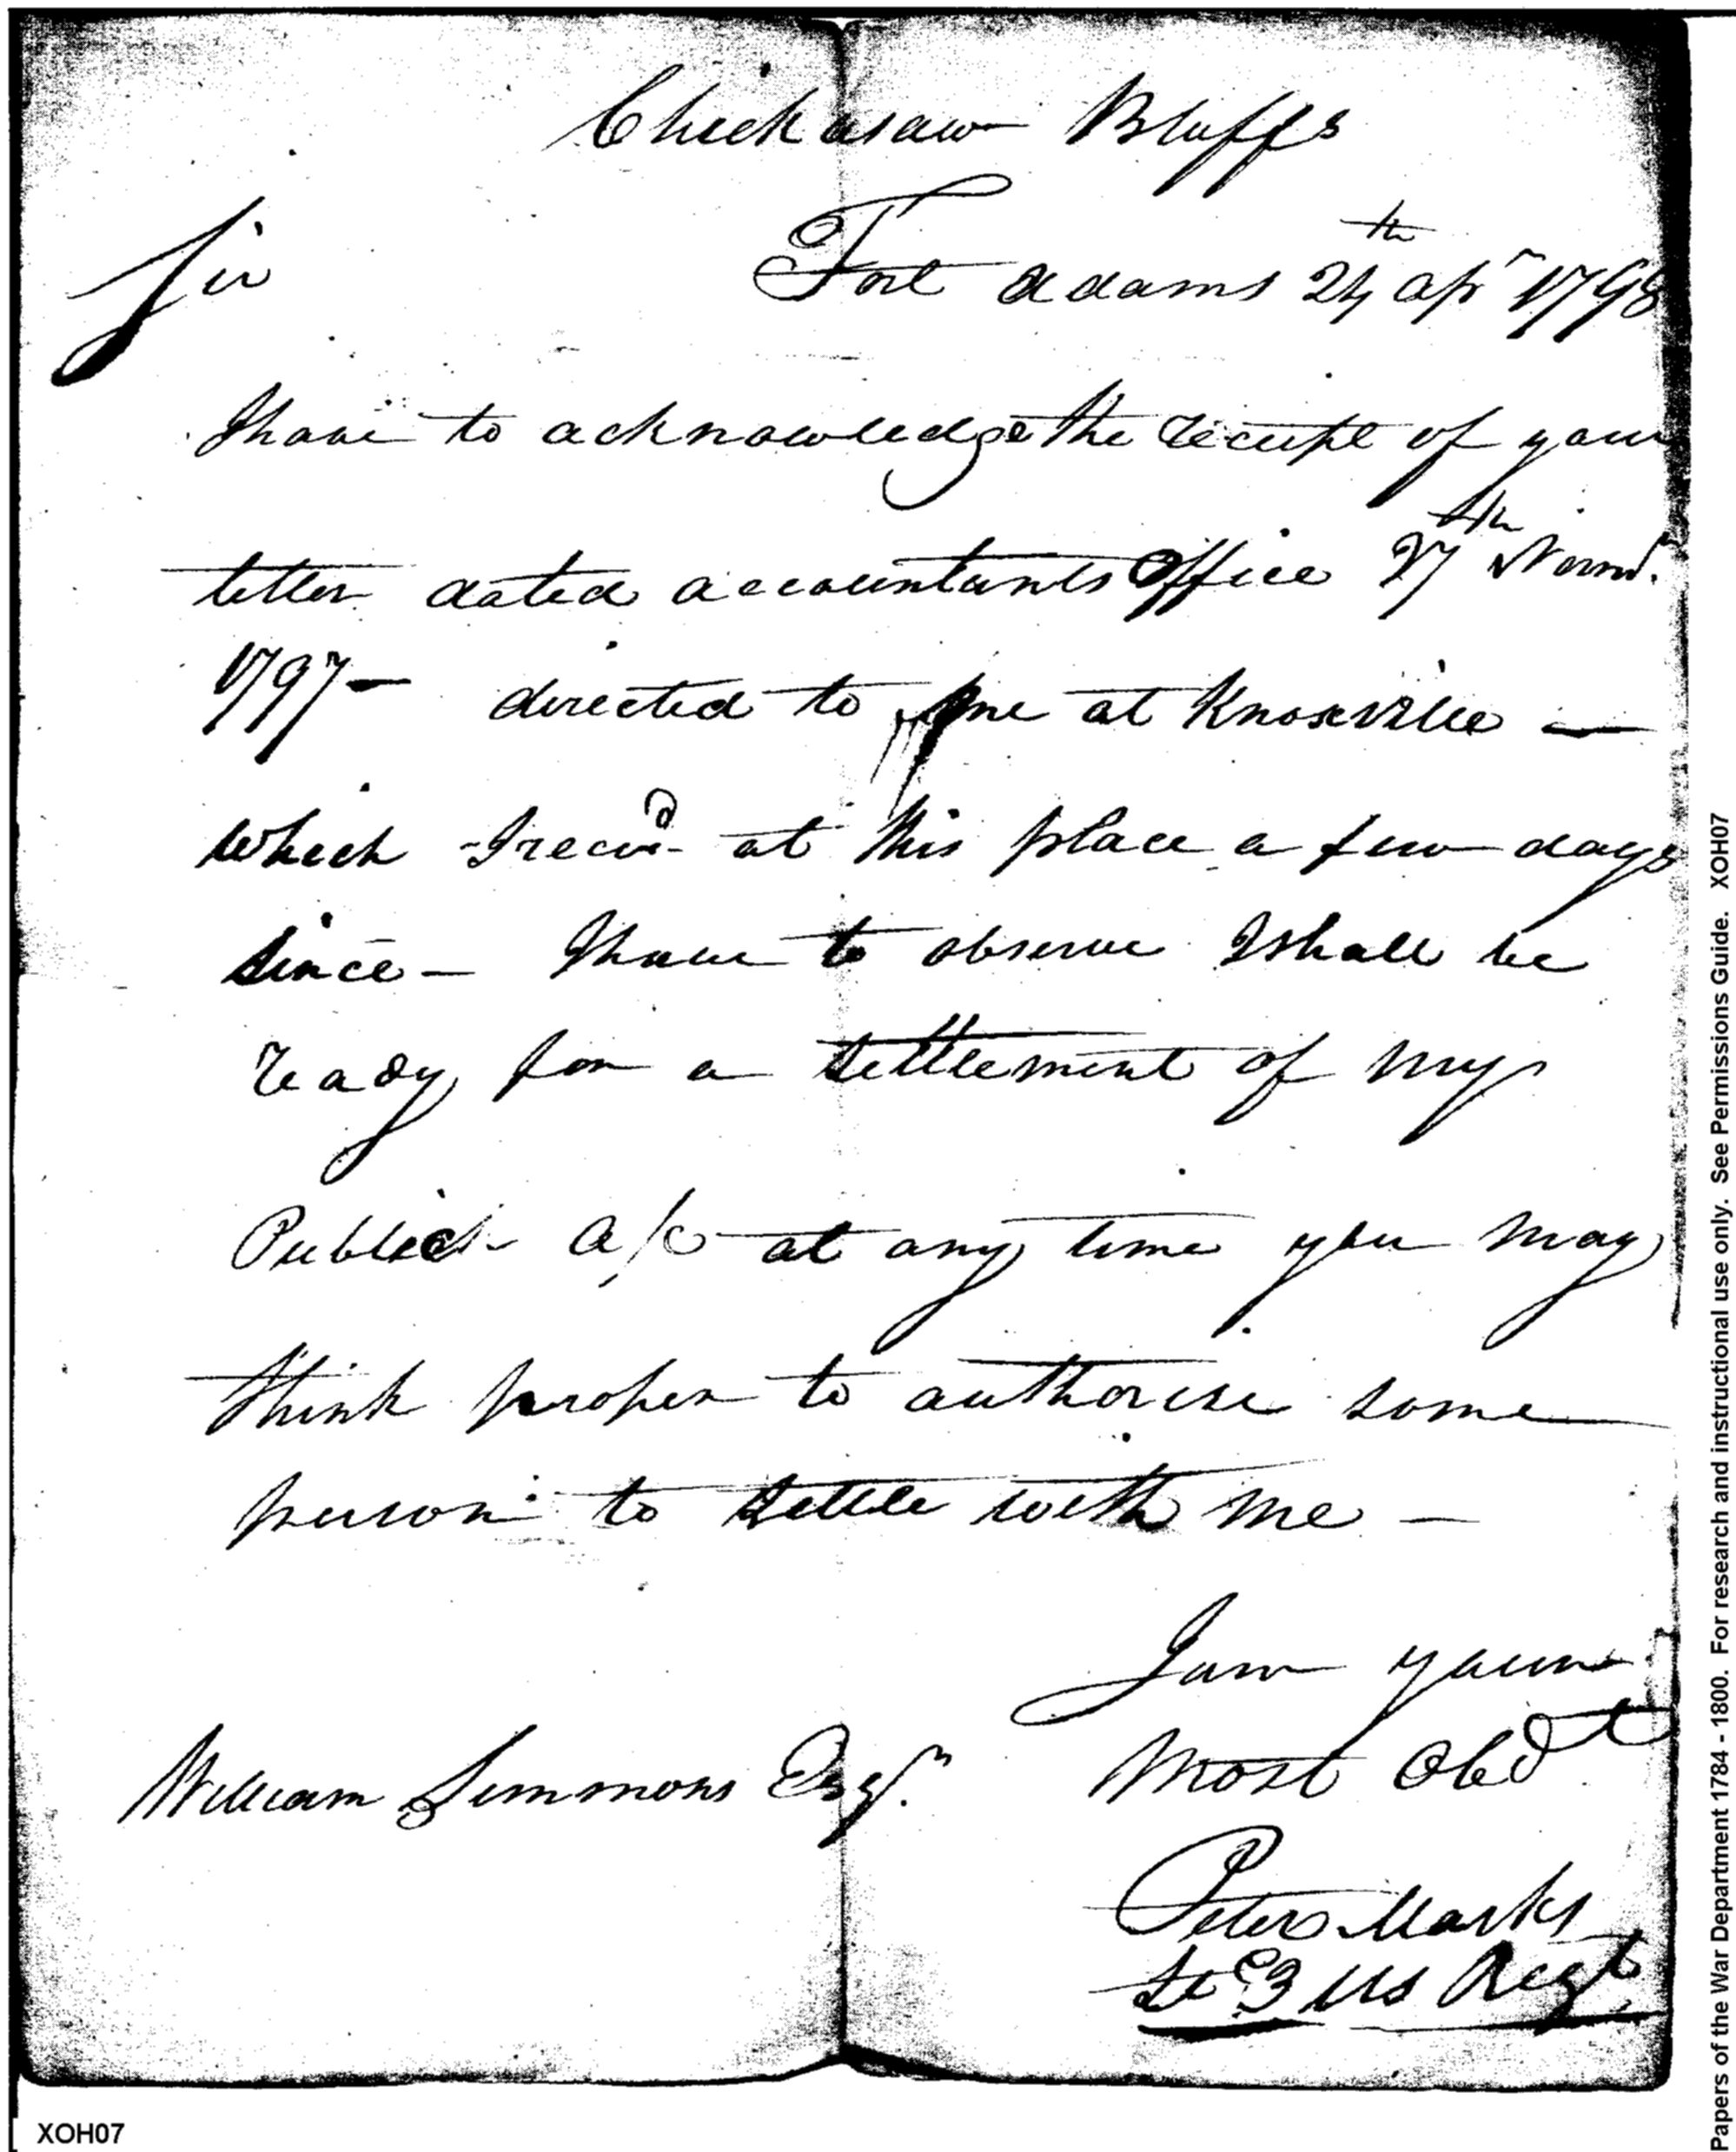 Chickasaw Bluffs
Sir
Fort Adams 24th Apr 1798
I have to acknowledge the receipt of your
letter dated accountants Office 27th Novmr.
1797 — directed to me at Knoxville —
which I recivd at this place a few days
since — I have to observe I shall be
ready for a settlement of my
Publick a/c at any time you may
think proper to authorise some
person to settle with me —
I am your
Most Obdt
William Simmons Esqr.
Peter Marks
Lt 3 US Regt.
XOH07
Papers of the War Department 1784 - 1800. For research and instructional use only. See Permissions Guide. XOH07